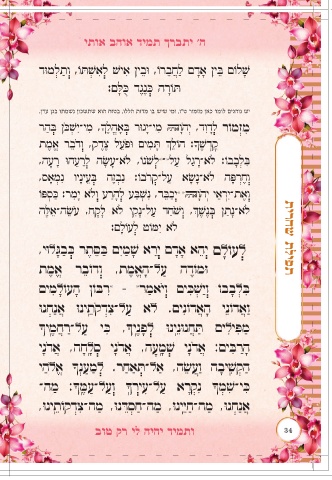 ה' יתברך תמיד אוהב אותי
שָׁלוֹם בֵּין אָדָם לַחֲבֵרוֹ, וּבֵין אִישׁ לְאִשְׁתּוֹ, וְתַלְמוּד
תּוֹרָה כְּנֶגֶד כֻּלָּם:
מִזְמוֹר לְדָוִד, יְהֹוָה מִי־יָגוּר בְּאָהֳלֶךָ, מִי־יִשְׁכֹּן בְּהַר
קָדְשֶׁךָ: הוֹלֵךְ תָּמִים וּפֹעֵל צֶדֶק, וְדֹבֵר אֱמֶת
בִּלְבָבוֹ: לֹא־רָגַל עַל־לְשֹׁנוֹ, לֹא־עָשָׂה לְרֵעֵהוּ רָעָה,
וְחֶרְפָּה לֹא־נָשָׂא עַל־קְרֹבוֹ: נִבְזֶה בְּעֵינָיו נִמְאָס,
וְאֶת־יִרְאֵי יְהֹוָה יְכַבֵּד, נִשְׁבַּע לְהָרַע וְלֹא יָמִר: כַּסְפּוֹ
לֹא־נָתַן בְּנֶשֶׁךְ, וְשֹׁחַד עַל־נָקִי לֹא לָקָח, עֹשֵׂה־אֵלֶּה
לֹא יִמּוֹט לְעוֹלָם:
לְעוֹלָם יְהֵא אָדָם יְרֵא שָׁמַיִם בַּסֵּתֶר כְּבַגָּלוּי,
וּמוֹדֶה עַל־הָאֱמֶת, וְדוֹבֵר אֱמֶת
בִּלְבָבוֹ וְיַשְׁכִּים וְיֹאמַר - רִבּוֹן הָעוֹלָמִים
וַאֲדוֹנֵי הָאֲדוֹנִים. לֹא עַל־צִדְקֹתֵינוּ אֲנַחְנוּ
מַפִּילִים תַּחֲנוּנֵינוּ לְפָנֶיךָ, כִּי עַל־רַחֲמֶיךָ
הָרַבִּים: אֲדֹנָי שְׁמָעָה, אֲדֹנָי סְלָחָה, אֲדֹנָי
הַקְשִׁיבָה וַעֲשֵׂה, אַל־תְּאַחַר, לְמַעַנְךָ אֱלֹהַי
כִּי־שִׁמְךָ נִקְרָא עַל־עִירְךָ וְעַל־עַמֶּךָ: מָה־
אֲנַחְנוּ, מֶה־חַיֵּינוּ, מֶה־חַסְדֵּנוּ, מַה־צִּדְקוֹתֵינוּ,
ותמיד יהיה לי רק טוב
תפילת שחרית
34